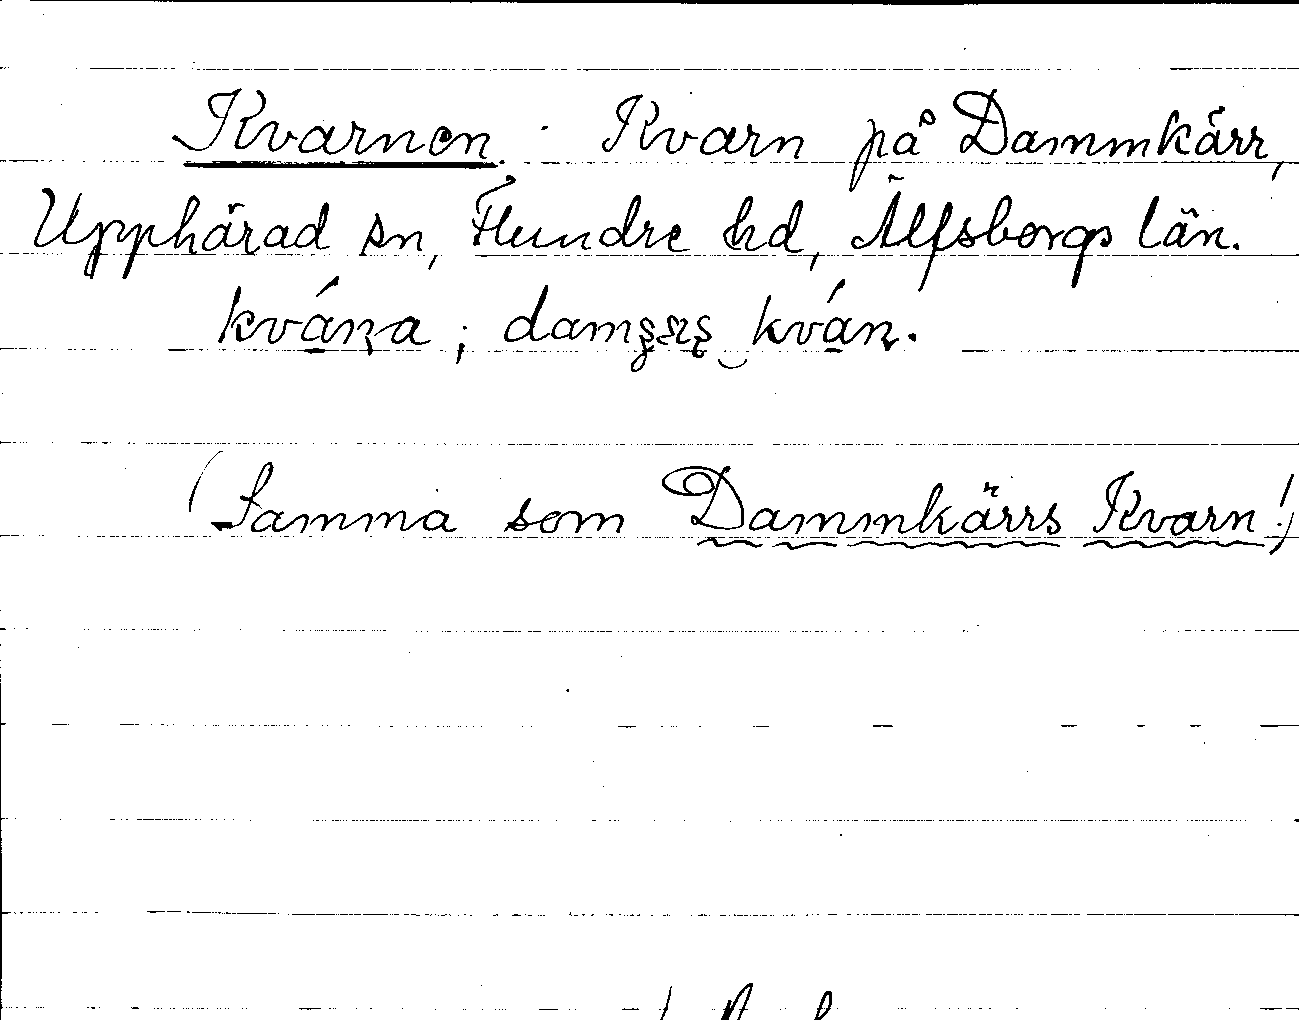 Kvarnen. Kvarn på Dammkärr,
Upphärad sn, Flundre hd, Älfsborgs län.
kvána; kván.
(Samma som Dammkärrs Kvarn!)